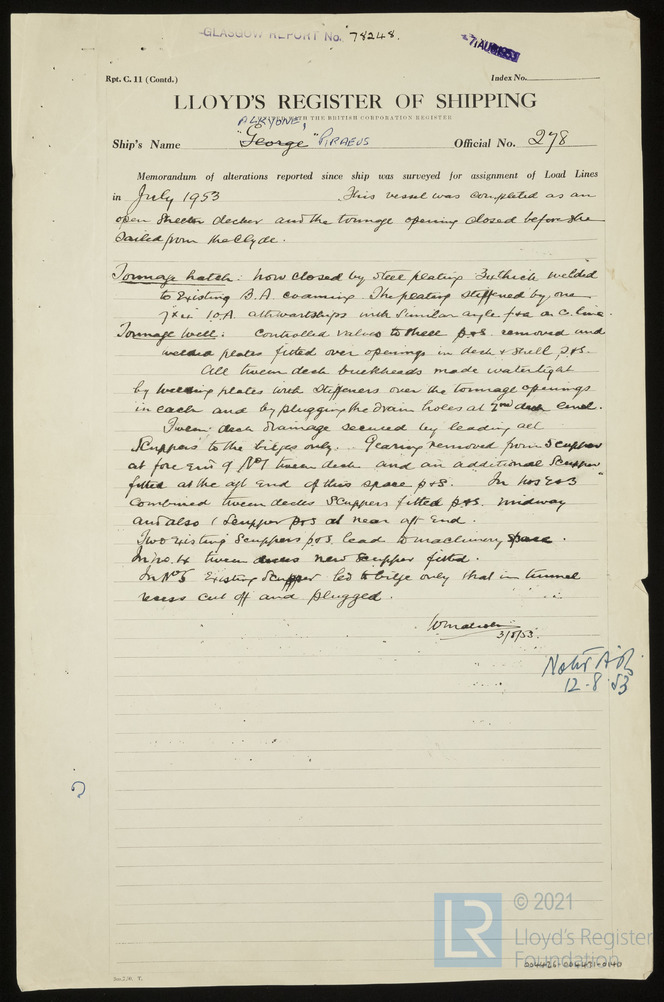 GLASGOW REPORT No. 78248.
7 AUG 1953
Rpt. C. 11 (Contd.)
Index No.
LLOYD'S REGISTER OF SHIPPING
WITH THE BRITISH CORPORATION REGISTER
ALKYONE,
Ship's Name "George" PIRAEUS Official No. 278
Memorandum of alterations reported since ship was surveyed for assignment of Load Lines
in July 1953 This vessel was completed as an
open shelter decker and the tonnage opening closed before she
sailed from the Clyde.
Tonnage hatch: now closed by steel plating thick welded
to existing coaming. The plating stiffened by one
athwartships with similar angle f&a on C. line.
Tonnage Well: Controlled valves to shell p&s. removed and
welded plates fitted over openings in deck & shell p&s.
All tween deck bulkheads made watertight
by welding plates with stiffeners over the tonnage openings
in each and by plugging the drain holes at 2nd deck level.
Tween deck drainage secured by leading all
scuppers to the bilges only. Gearing removed from scupper
at fore end of No 1 tween deck and an additional scupper
fitted at the aft end of this space p&s. In Nos 2&3
combined tween decks scuppers fitted p&s. midway
and also 1 scupper p&s at near aft end.
Two existing scuppers p&s. lead to machinery space.
In No. 4 tween decks new scupper fitted.
In No 5 existing scupper led to bilge only that in tunnel
recess cut off and plugged.
3/8/53.
Noted
12-8-53
© 2021
LR
Lloyd's Register
Foundation
004426-004431-0140